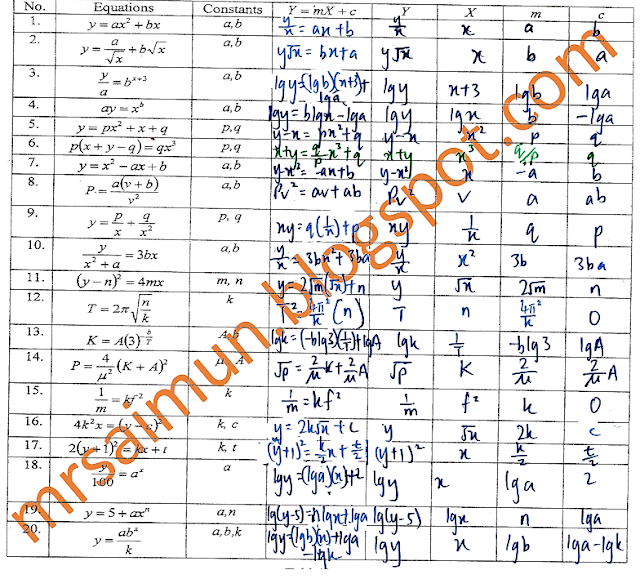 No. Equations Constants Y = mX + c Y X m c
1. y = ax² + bx a,b y/x = ax+b y/x x a b
2. y = a/√x + b√x a,b y√x = bx+a y√x x b a
3. y/a = b^(x+3) a,b lgy=(lgb)(x+3)+lga lgy x+3 lgb lga
4. ay = x^b a,b lgy = blgx-lga lgy lgx b -lga
5. y = px² + x + q p,q y-x = px²+q y-x x² p q
6. p(x + y − q) = qx³ p,q x+y = q/p x³+q x+y x³ q/p q
7. y = x² − ax + b a,b y-x² = -ax+b y-x² x -a b
8. P = a(v + b)/v² a,b Pv² = av+ab Pv² v a ab
9. y = p/x + q/x² p, q xy = q(1/x)+p xy 1/x q p
10. y/(x² + a) = 3bx a,b y/x = 3bx²+3ba y/x x² 3b 3ba
11. (y − n)² = 4mx m, n y = 2√m(√x)+n y √x 2√m n
12. T = 2π√(n/k) k T² = 4π²/k (n) T n 4π²/k 0
13. K = A(3)^(−b/T) A,b lgk = (-blg3)(1/T)+lgA lgk 1/T -blg3 lgA
14. P = 4/μ² (K + A)² μ, A √p = 2/μ K + 2/μ A √p K 2/μ 2/μ A
15. 1/m = kf² k 1/m = kf² 1/m f² k 0
16. 4k²x = (y − c)² k, c y = 2k√x + c y √x 2k c
17. 2(y + 1)² = kx + t k, t (y+1)² = k/2 x + t/2 (y+1)² x k/2 t/2
18. y/100 = a^x a lgy = (lga)(x)+2 lgy x lga 2
19. y = 5 + ax^n a,n lg(y-5) = nlgx+lga lg(y-5) lgx n lga
20. y = ab^x/k a,b,k lgy = (lgb)(x)+lga-lgk lgy x lgb lga-lgk
mrsaimun.blogspot.com